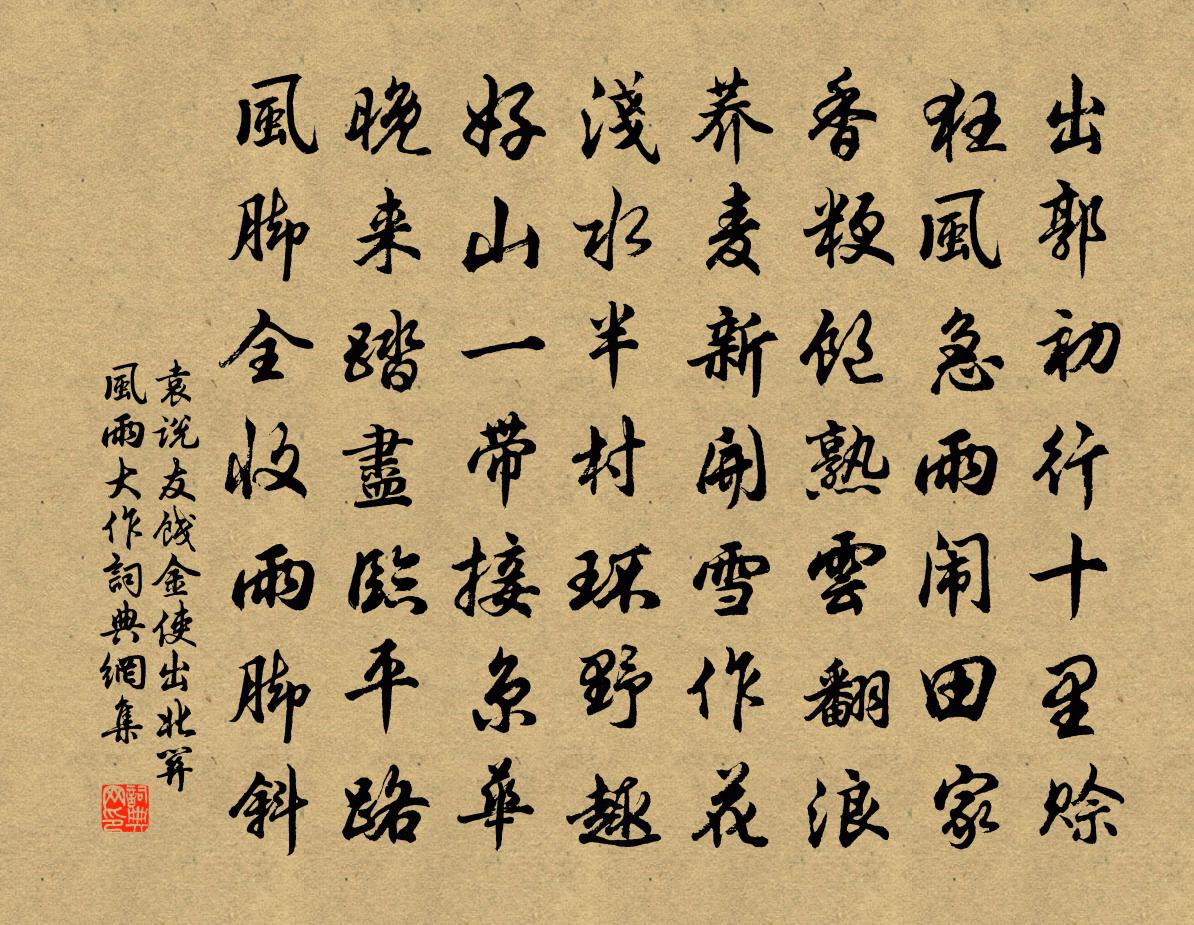 出郭初行十里赊
狂風急雨闹田家
香粳飽熟雲翻浪
荞麦新開雪作花
淺水半村環野趣
好山一带接京華
晚来踏盡臨平路
風脚全收雨脚斜
袁说友餞金使出北關
風雨大作詞典網集
詞典网印